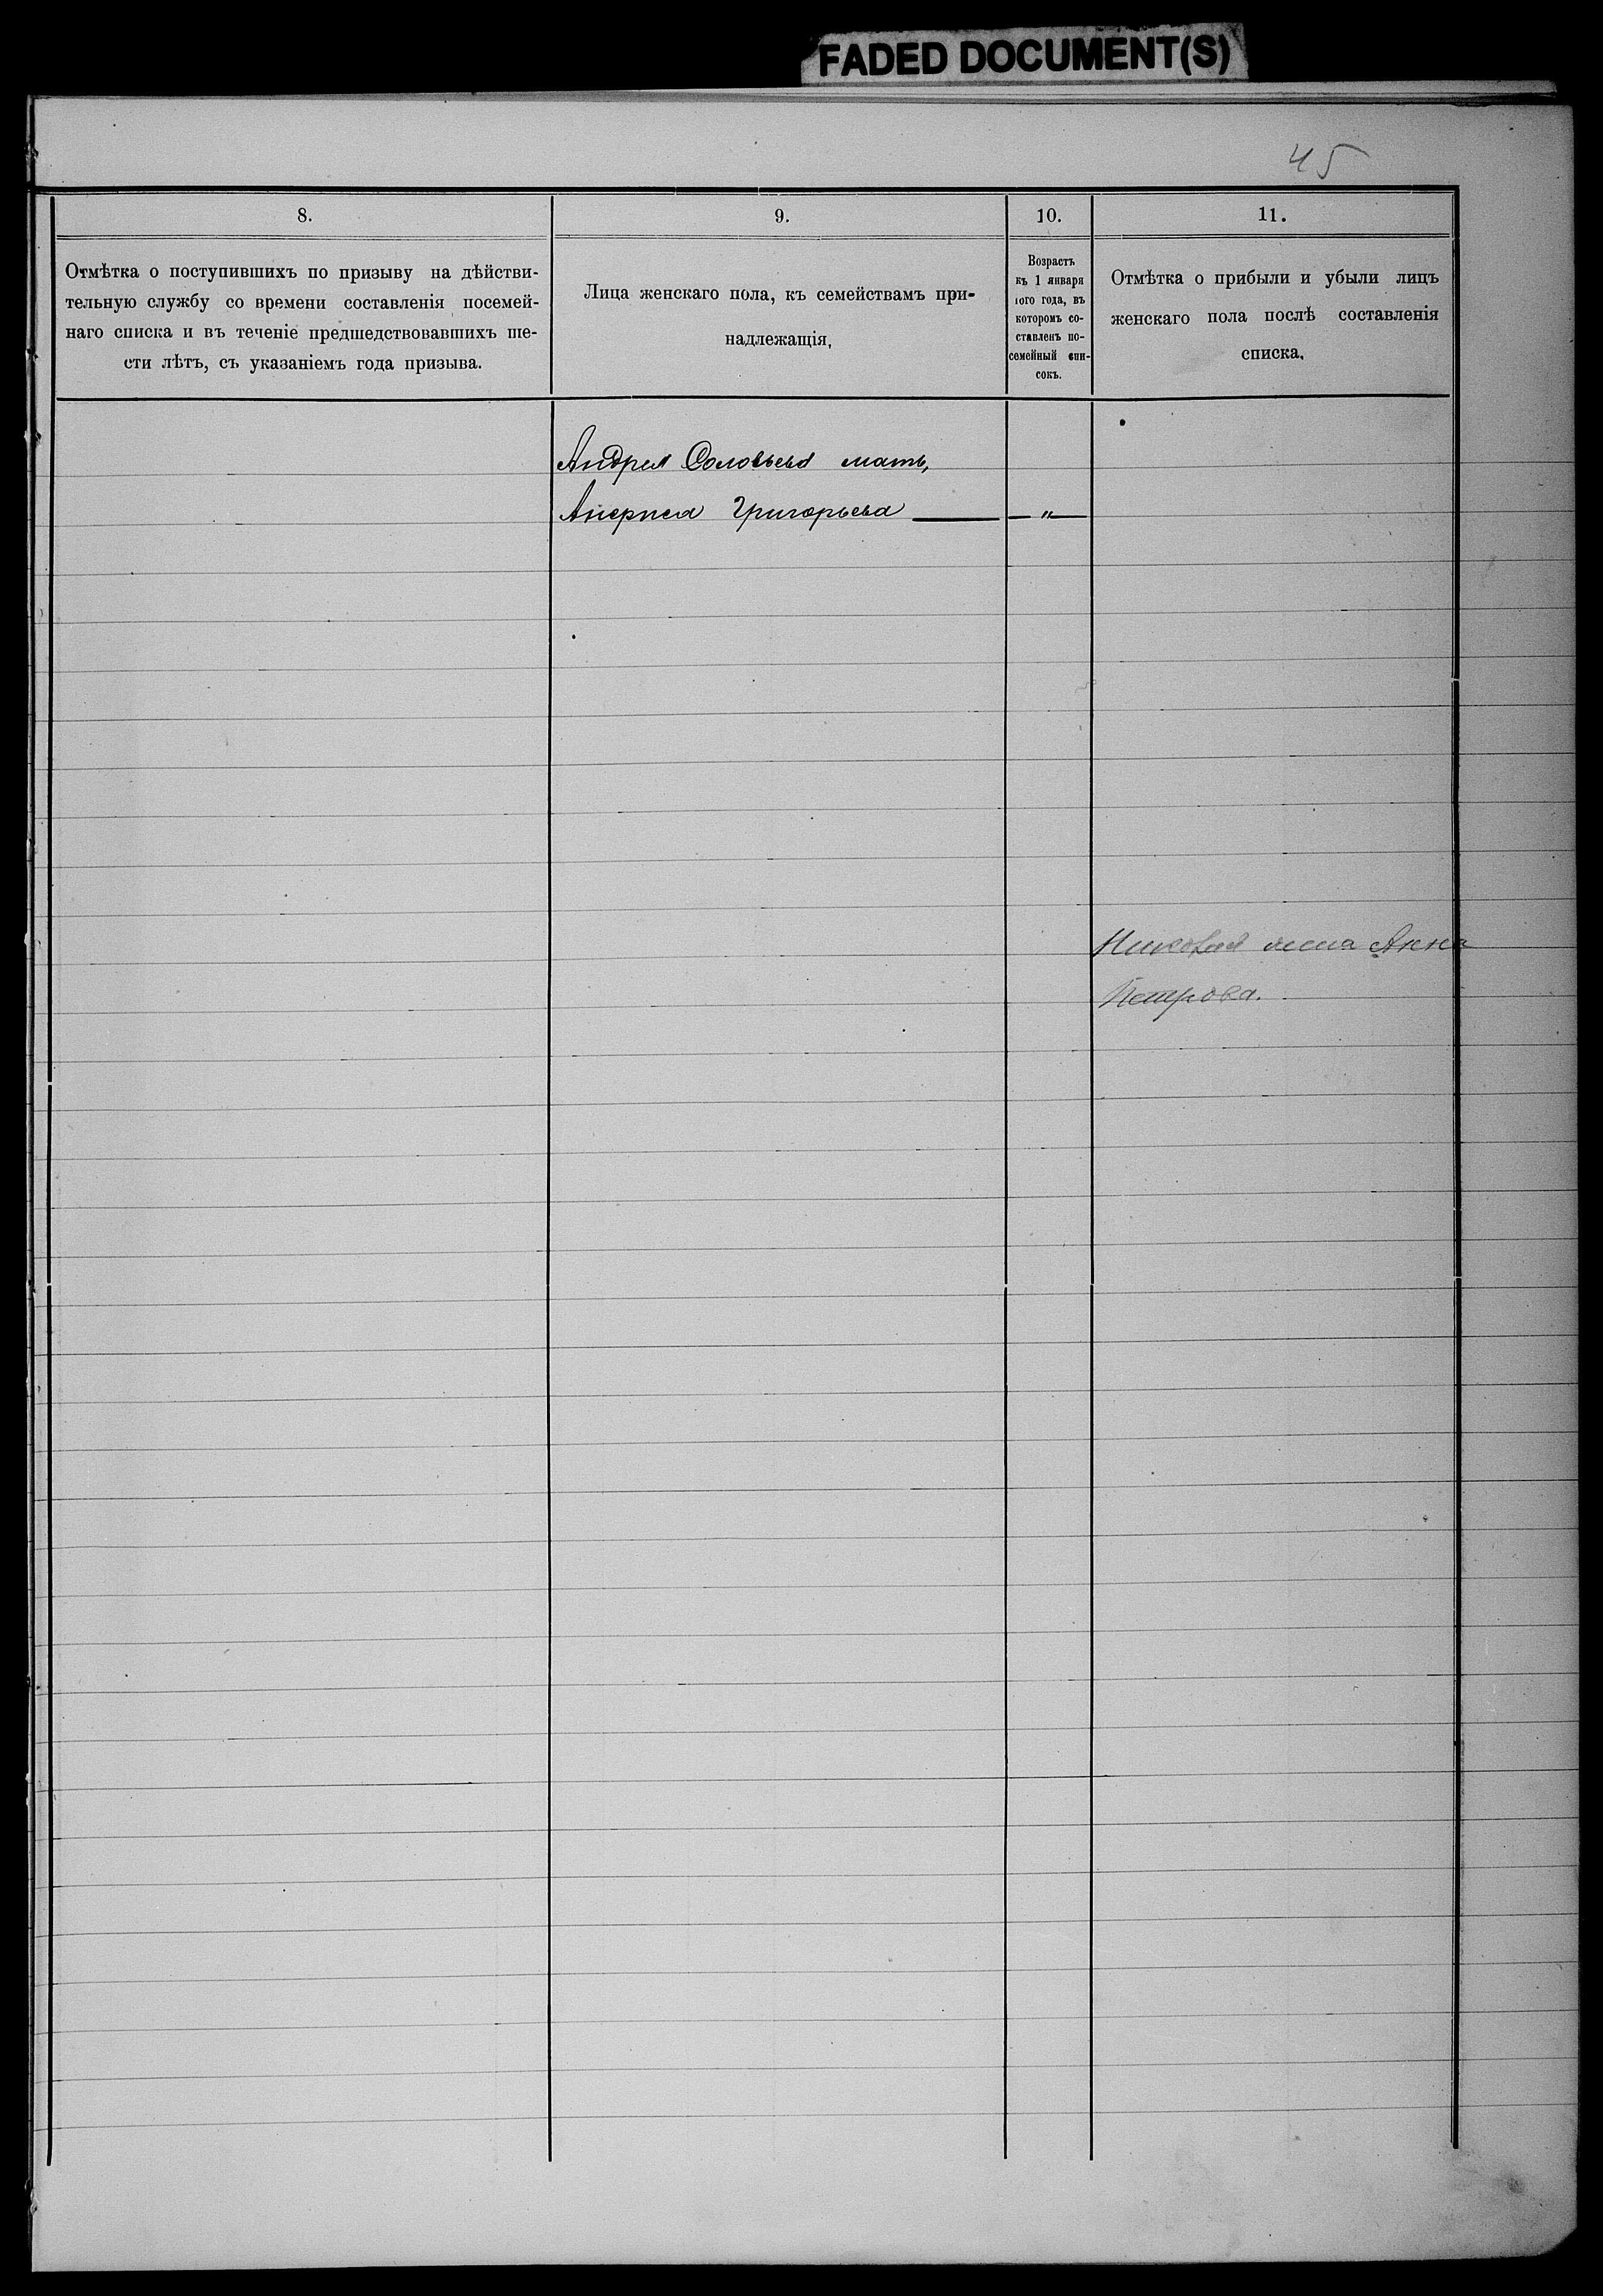 FADED DOCUMENT(S)
45
8.
Отмѣтка о поступившихъ по призыву на дѣйстви-
тельную службу со времени составленія посемей-
наго списка и въ теченіе предшедствовавшихъ ше-
сти лѣтъ, съ указаніемъ года призыва.
9.
Лица женскаго пола, къ семействамъ при-
надлежащія.
10.
Возрастъ
къ 1 января
того года, въ
которомъ со-
ставленъ по-
семейный спи-
сокъ.
11.
Отмѣтка о прибыли и убыли лицъ
женскаго пола послѣ составленія
списка.
Андрея Соловьева мать,
Григорьева — „ —
Николая жена Анна
Петрова.